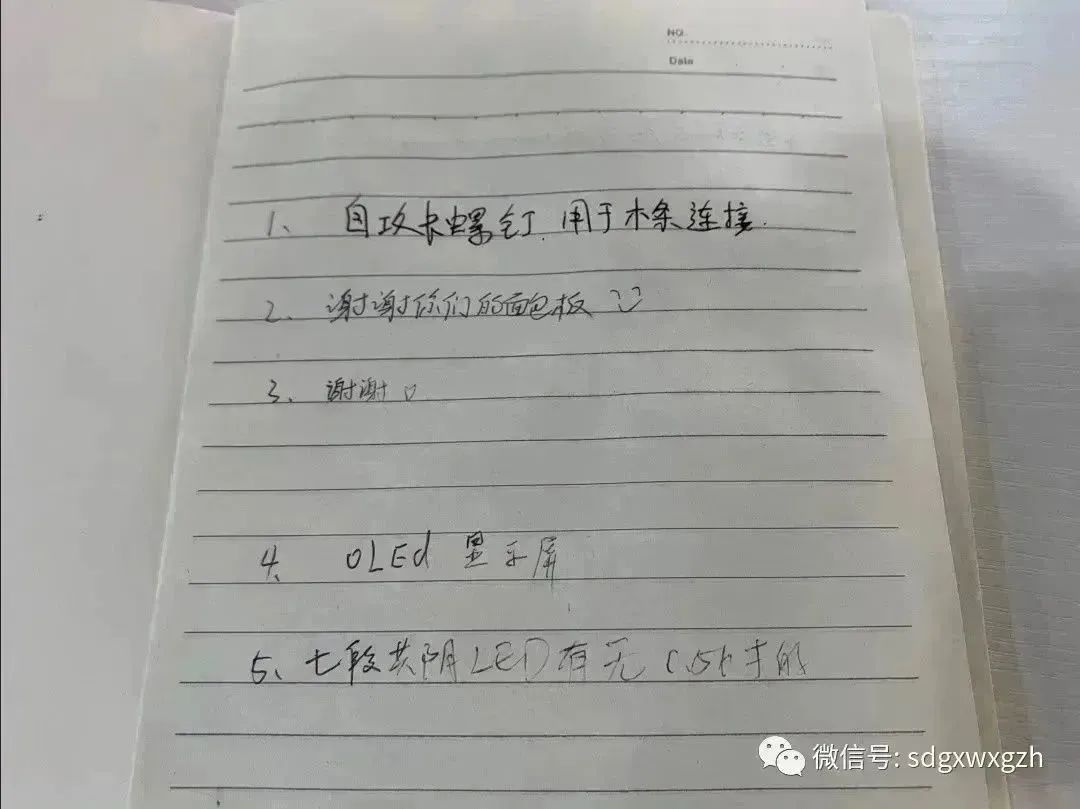 NO.
Date
1、 自攻长螺钉.用于木条连接.
2、谢谢你们的面包板
3、谢谢。
4、 OLEd 显示屏
5、七段共阴LED有无 寸的
微信号: sdgxwxgzh